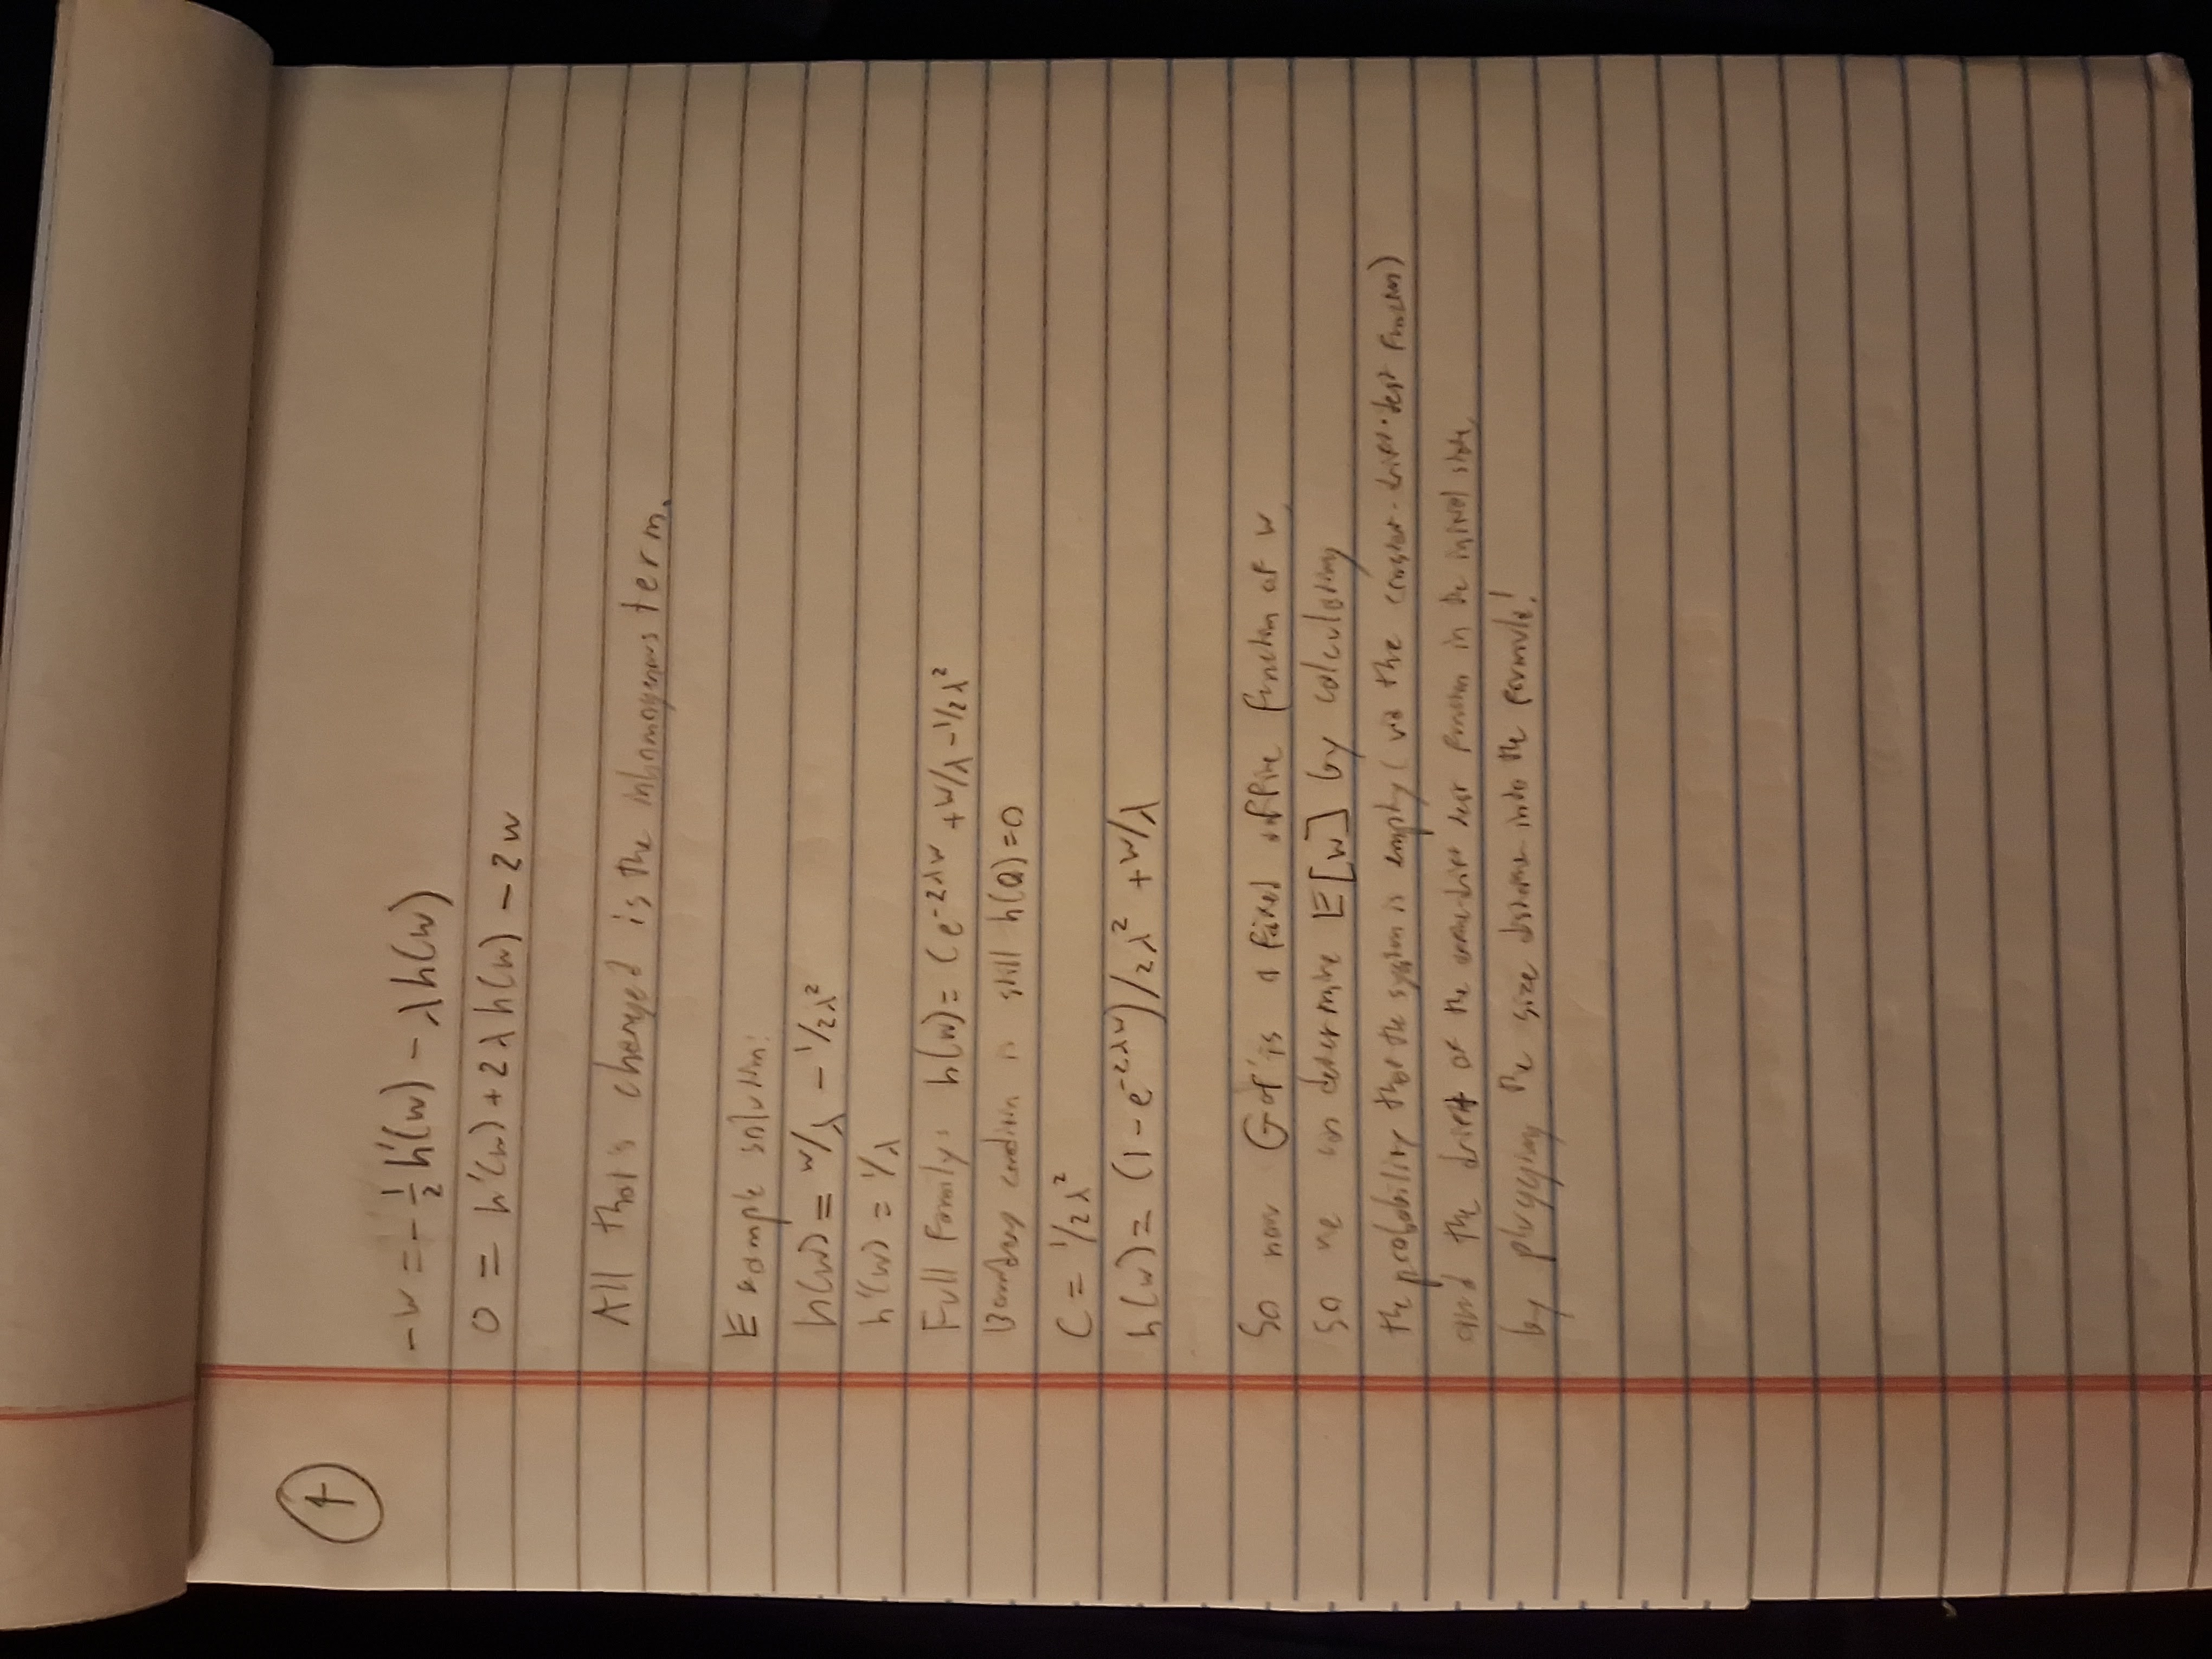 4
-w = -1/2 h'(w) - λh(w)
0 = h'(w) + 2λh(w) - 2w
All that's changed is the inhomogenous term.
Example solution:
h(w) = w/λ - 1/2λ²
h'(w) = 1/λ
Full family: h(w) = Ce^{-2λw} + w/λ - 1/2λ²
Boundary condition is still h(0)=0
C = 1/2λ²
h(w) = (1 - e^{-2λw})/2λ² + w/λ
So now G∘f is a fixed affine function of w,
so we can determine E[w] by calculating
the probability that the system is empty (via the constant-drift-test function)
and the drift of the affine-drift test function in the initial state,
by plugging the size distribution into the formula!